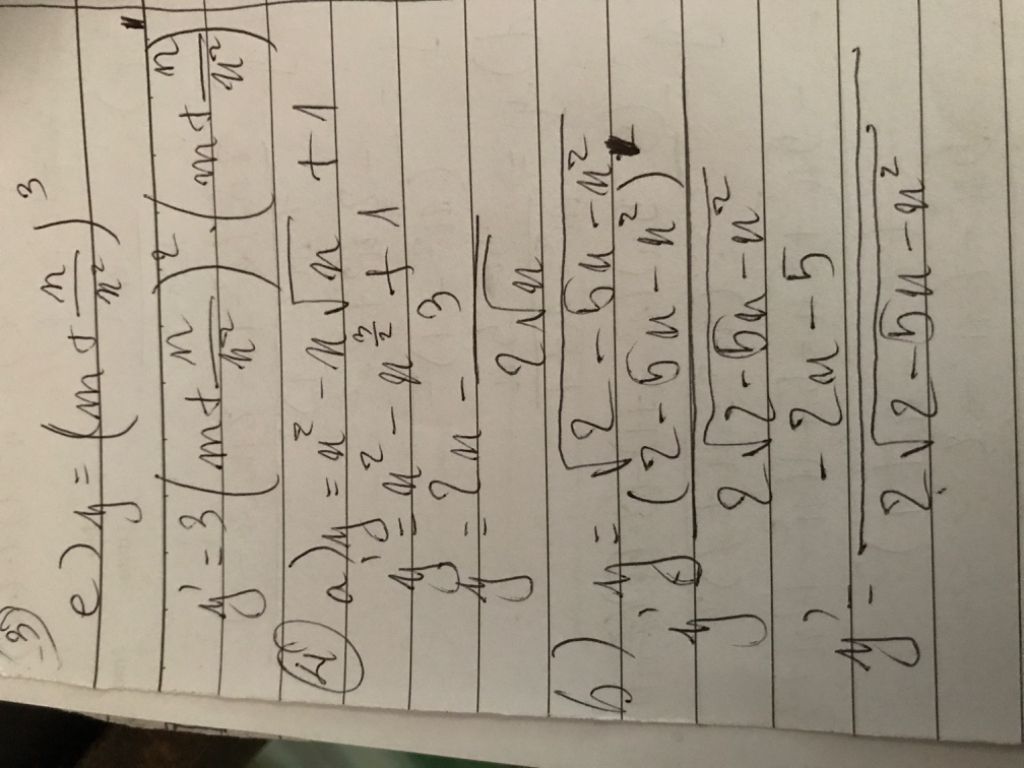 3)
e) y = (m + n/x²)³
y' = 3(m + n/x²)² · (m + n/x²)
4) a) y = x² - x√x + 1
y = x² - x^(3/2) + 1
y' = 2x - 3/2√x
b) y = √2 - 5x - x²
y' (2 - 5x - x²)/2√2 - 5x - x²
y' = - 2x - 5/2√2 - 5x - x²